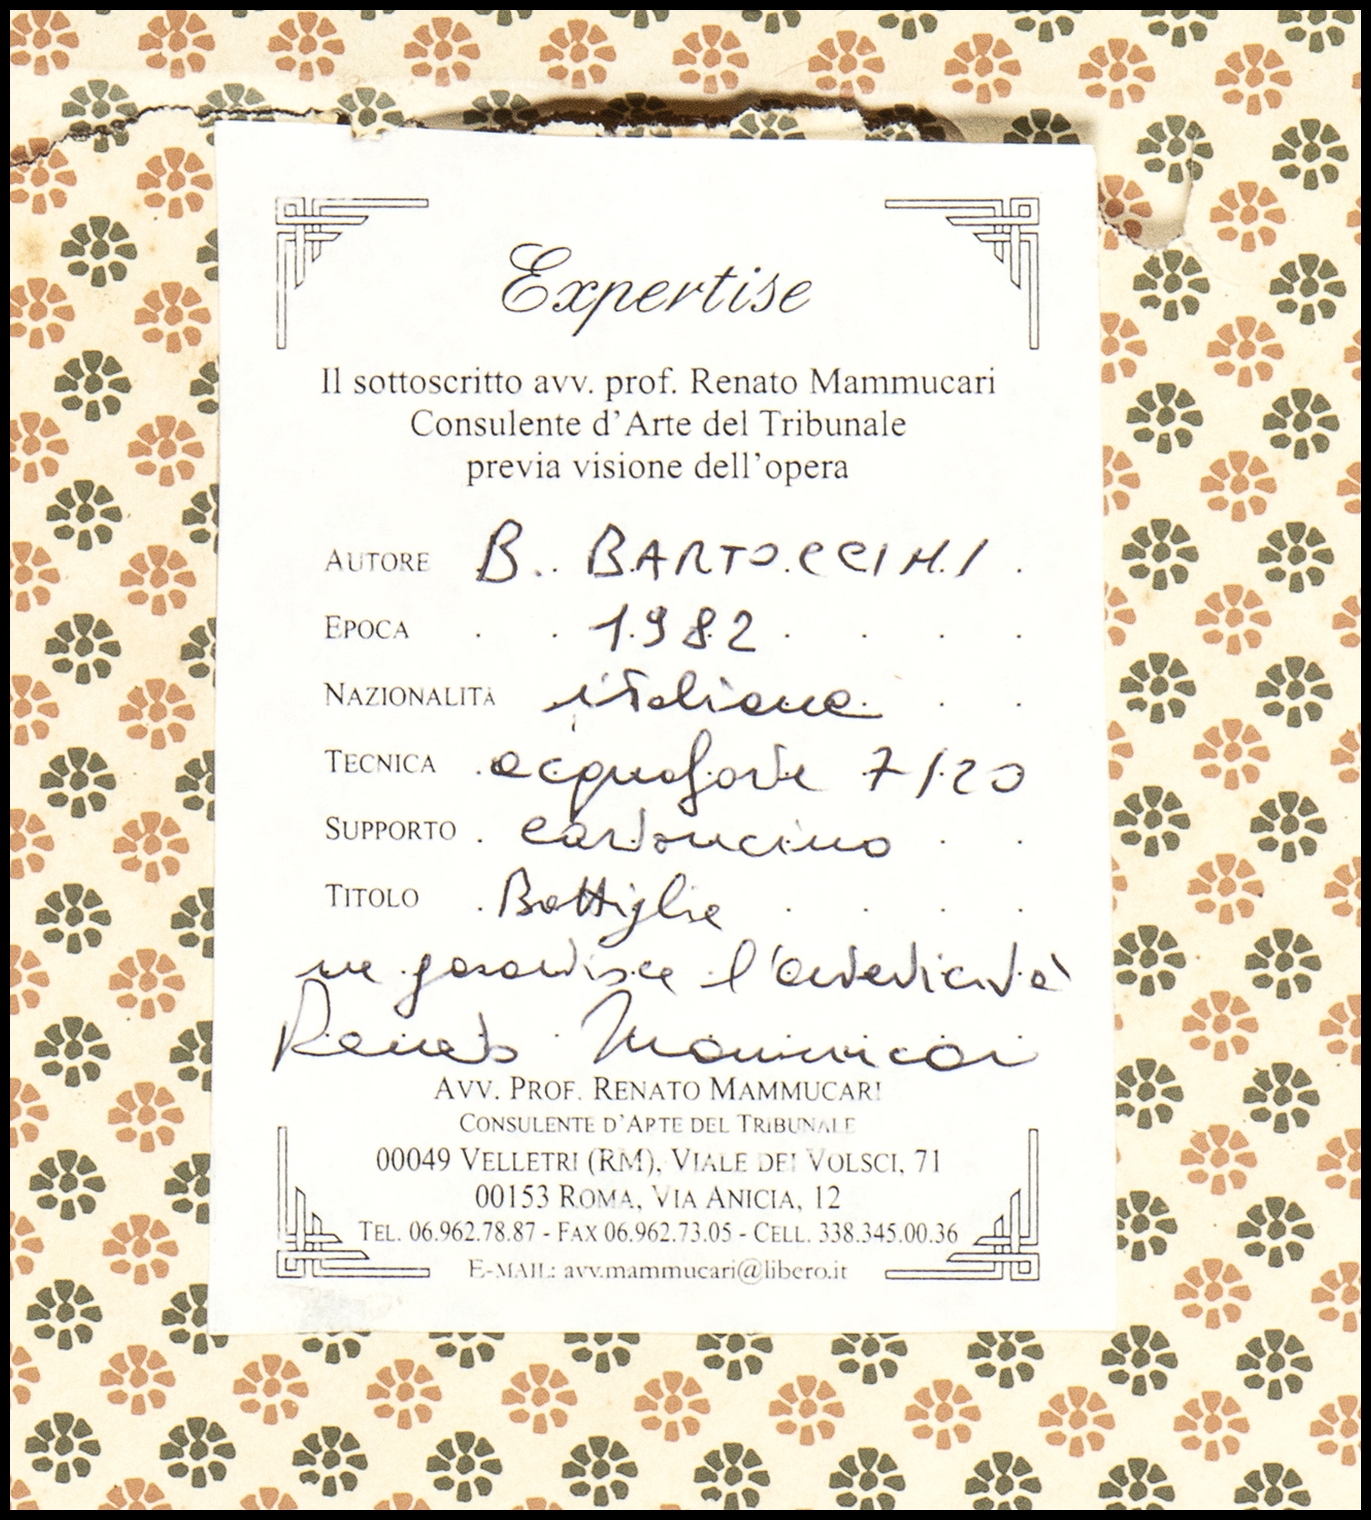 Expertise
Il sottoscritto avv. prof. Renato Mammucari
Consulente d'Arte del Tribunale
previa visione dell'opera
AUTORE B. BARTOCCINI
EPOCA 1982
NAZIONALITÀ italiana
TECNICA acquaforte 7/20
SUPPORTO cartoncino
TITOLO Bottiglie
ne garantisce l'autenticità
Renato Mammucari
AVV. PROF. RENATO MAMMUCARI
CONSULENTE D'ARTE DEL TRIBUNALE
00049 VELLETRI (RM), VIALE DEI VOLSCI, 71
00153 ROMA, VIA ANICIA, 12
TEL. 06.962.78.87 - FAX 06.962.73.05 - CELL. 338.345.00.36
E-MAIL: avv.mammucari@libero.it